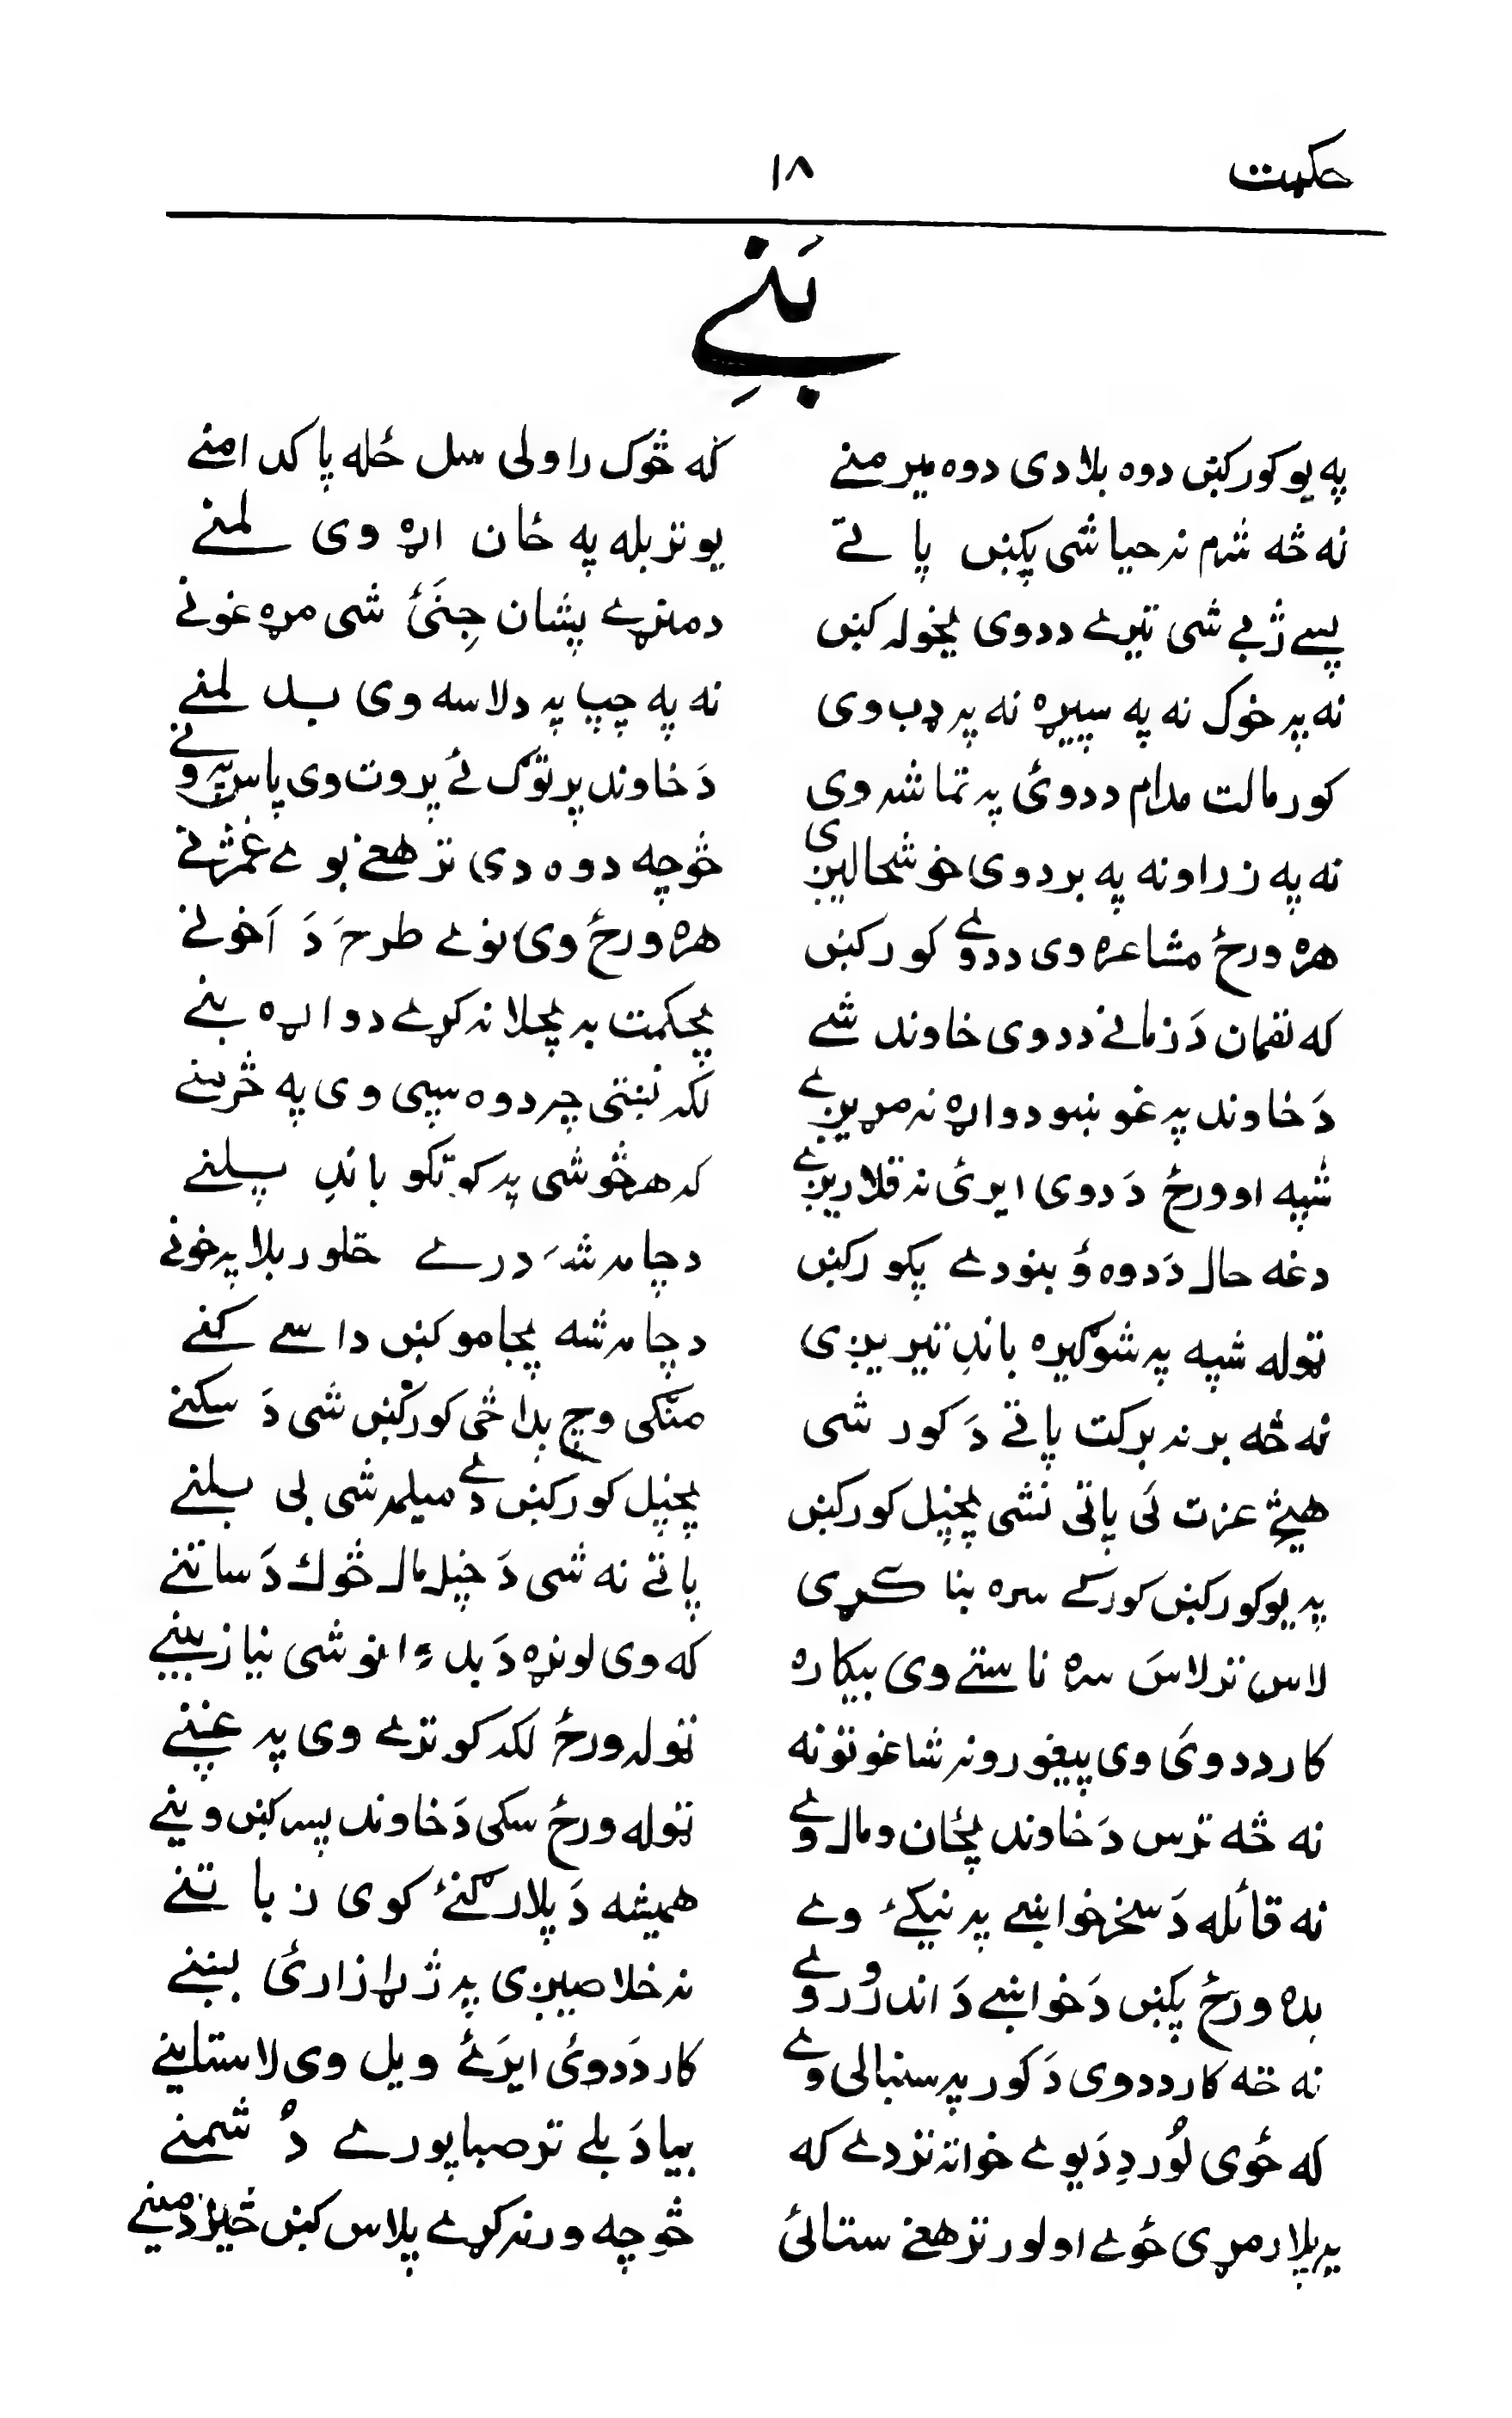 حکمت
۱۸
بَنِے
په یو کور کښ دوه بلا دی دوه میرمنے
که څوک راولی سل ځله پاکدامنے
نه څه شرم نه حیا شی پکښ پاتے
یو تر بله په ځان اړه وی لمنے
پسے ژبے شی تیرے ددوی پخوله کښ
دمنړے پشان جِنَئ شی مړه غونے
نه په خوک نه په سپیړه نه په ډب وی
نه په چپ په دلاسه وی بدلمنے
کور مالت مدام ددوئ په تماشه وی
دَ خاوند پرتوګ ئے پروت وی پاس په ونے
نه په زر او نه په بر دوی خوشحالیږی
څو چه دوه دی تر هغے بوے غمژنے
هره ورځ مشاعره وی ددوے کور کښ
هره ورځ وی نوے طرحَ دَ اَخونے
که لقمان دَ زمانے ددوی خاوند شے
پحکمت به پخلا نه کړے دواړه بنے
دَ خاوند په غوښو دواړه نه مړیږے
لکه نښتی چر دوه سپی وی په څرمنے
شپه او ورځ دَ دوی ایرئ نه قلاریږے
که هرڅو شی په کوټکو باندِ پسلنے
دغه حال دَ دوه ؤ بنو دے پکور کښ
دچا مه شَه درے څلور بلا په خونے
ټوله شپه په شوګیره باندِ تیریږی
دچا مه شه پجامو کښ داسے کنے
نه څه بر نه برکت پاتے دَ کور شی
منګی وچ پداځی کور کښ شی دَ سکنے
هیڅ عزت ئی پاتی نشی پخپل کور کښ
پخپل کور کښ دے میلمه شی بی بلنے
په یو کور کښ کور کے سره بنا کړی
پاتے نه شی دَ خپل مال څوک دَ ساتنے
لاس تر لاسَ سره ناستے وی بیکاره
که وی لونړه دَ بداانو شی نیازبینے
کار ددوئ وی پیغورونه شاغوتونه
ټوله ورځ لکه کونترے وی په غنپے
نه څه ترس دَ خاوند پځان و مال وے
ټوله ورځ سکی دَ خاوند پسه کښ وینے
نه قائله دَ سخر خواښے په نیکئ وے
همیشه دَ پلار ګنئ کوی زباتنے
بده ورځ پکښ دَ خواښے دَ اندرُور وے
نه خلاصیږی په ژړا زارئ بښنے
نه څه کار ددوی دَ کور په سنبالی وے
کار دَدوئ ایرَئے ویل وی لاستاینے
که ځوی لُور دِ دَیوے خواته نزدے که
بیا دَ بلے تر صبا پورے دُ شمنے
په پلار مړی ځوے او لور تر هغے ستائ
څو چه ورنه کړے پلاس کښ څیز دمینے